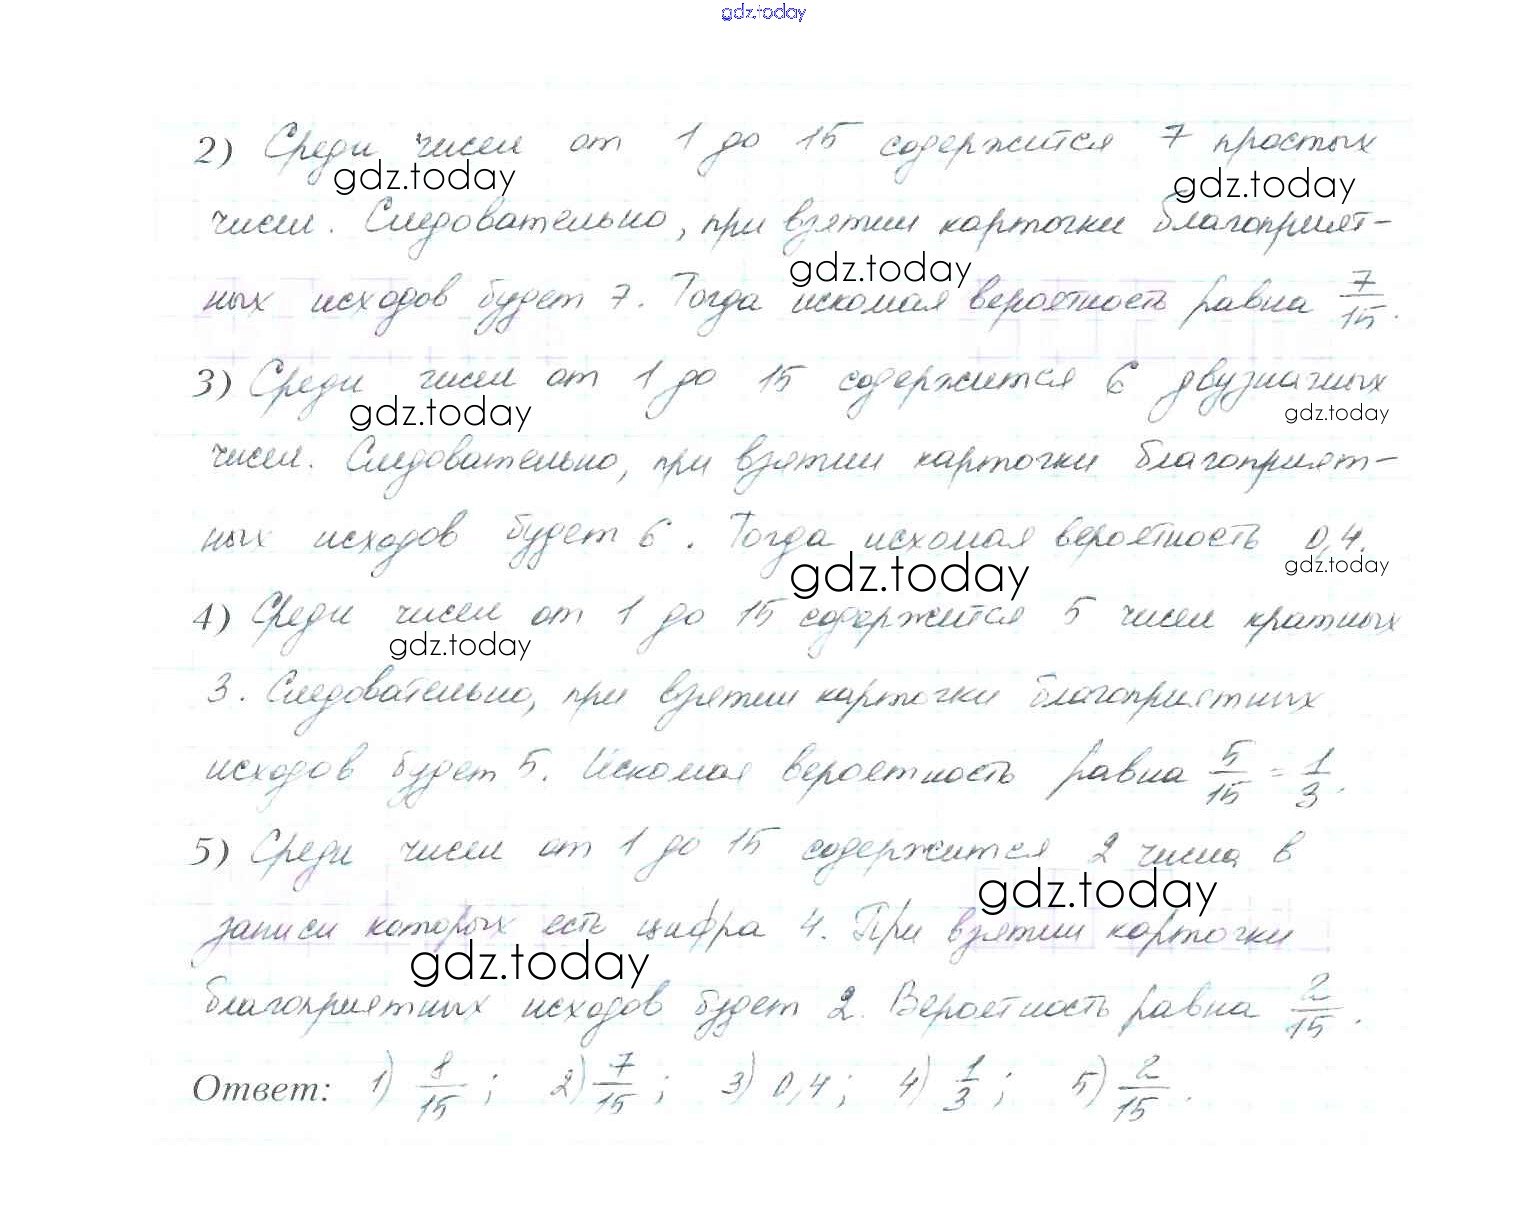 gdz.today
2) Среди чисел от 1 до 15 содержится 7 простых
gdz.today gdz.today
чисел. Следовательно, при взятии карточки благоприят-
gdz.today
ных исходов будет 7. Тогда искомая вероятность равна 7/15.
3) Среди чисел от 1 до 15 содержится 6 двузначных
gdz.today gdz.today
чисел. Следовательно, при взятии карточки благоприят-
ных исходов будет 6. Тогда искомая вероятность 0,4.
gdz.today gdz.today
4) Среди чисел от 1 до 15 содержится 5 чисел кратных
gdz.today
3. Следовательно, при взятии карточки благоприятных
исходов будет 5. Искомая вероятность равна 5/15 = 1/3.
5) Среди чисел от 1 до 15 содержится 2 числа, в
gdz.today
записи которых есть цифра 4. При взятии карточки
gdz.today
благоприятных исходов будет 2. Вероятность равна 2/15.
Ответ: 1) 8/15; 2) 7/15; 3) 0,4; 4) 1/3; 5) 2/15.